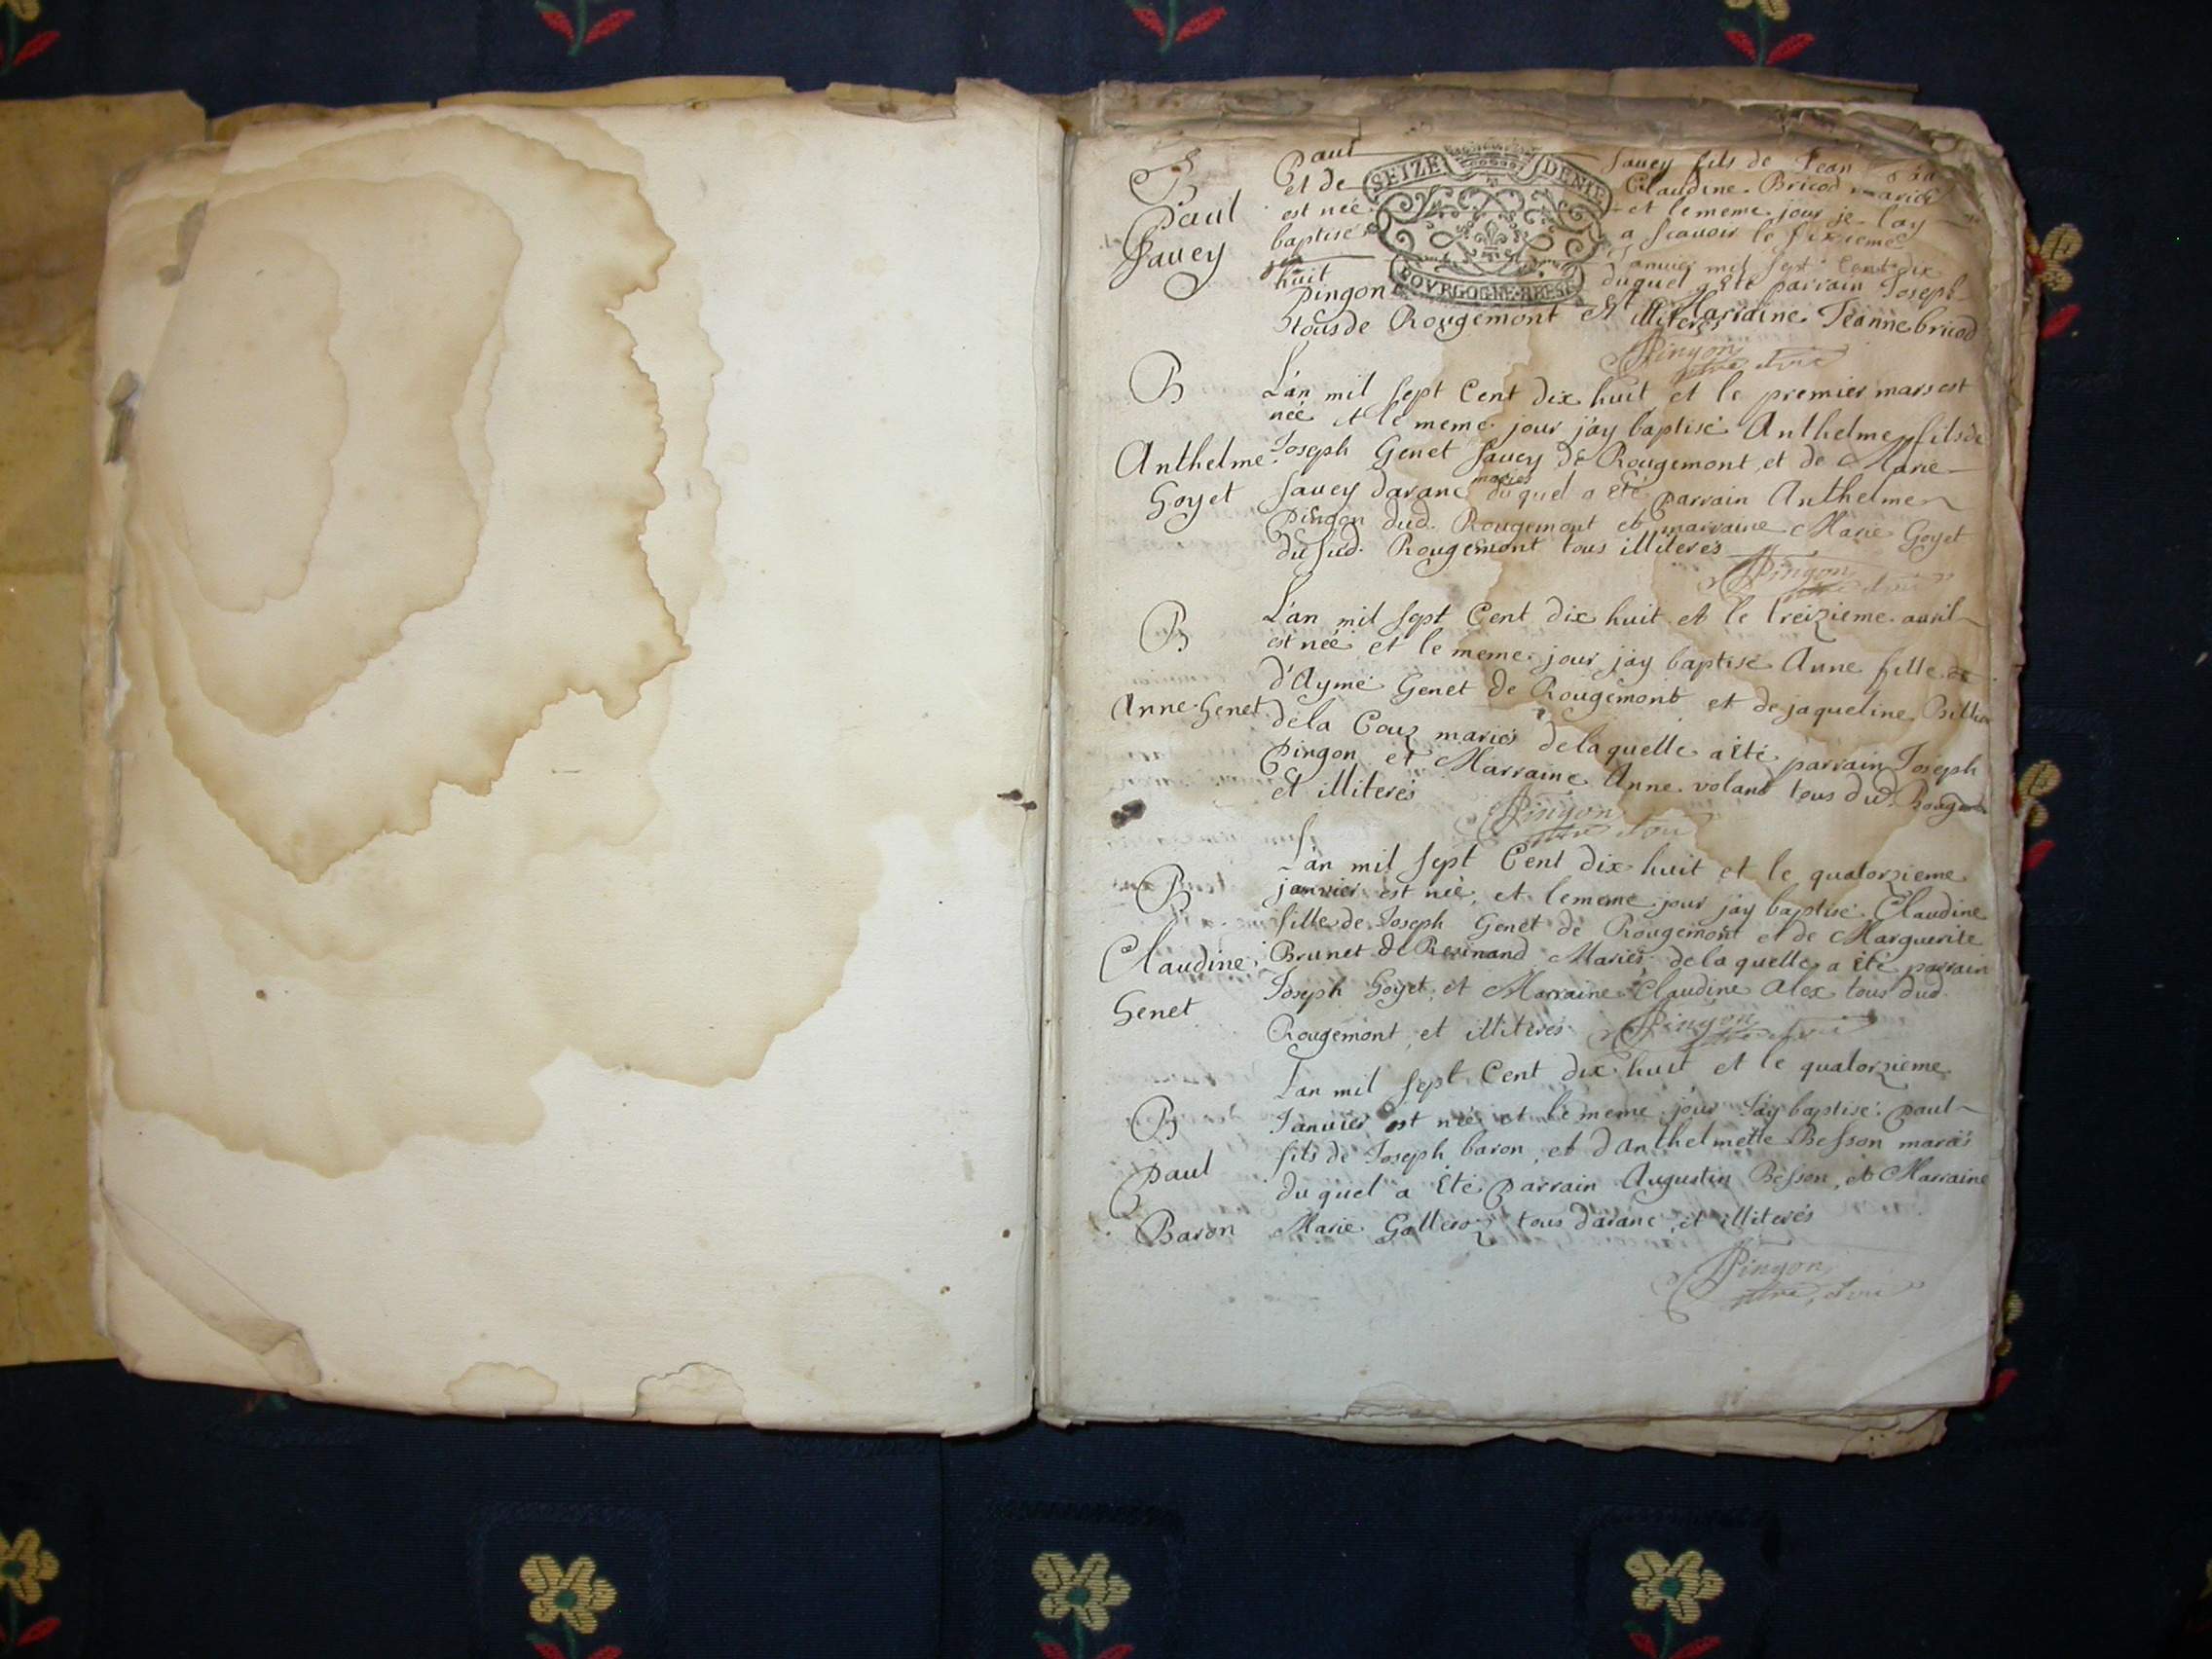 B
Paul
Savey
Paul Savey fils de Jean
et de Claudine Bricod mariés
est neé et le meme jour je lay
baptisé a scavoir le sixieme
Janvier mil sept Cent dix
huit duquel a Eté parrain Joseph
Pingon Et Marraine Jeanne bricod
tous de Rougemont et illiterés
Pingon
SEIZE DENIE
BOVRGOGNE BRESSE
B
Anthelme
Goyet
L'an mil sept Cent dix huit et le premier mars est
neé et le meme jour j'ay baptisé Anthelme fils de
Joseph Genet Savey de Rougemont, et de Marie
Savey daranc mariés duquel a eté parrain Anthelme
Pingon dud. Rougemont et marraine Marie Goyet
dusud. Rougemont tous illiterés
Pingon
B
Anne Genet
L'an mil sept Cent dix huit et le treizieme avril
est neé et le meme jour j'ay baptisé Anne fille
d'Aymé Genet de Rougemont et de jaqueline
de la Couz mariés delaquelle a Eté parrain Joseph
Pingon et Marraine Anne volant tous dud. Rougemont
et illiterés
Pingon
B
Claudine
Genet
L'an mil sept Cent dix huit et le quatorzieme
janvier est neé, et lememe jour jay baptisé Claudine
fille de Joseph Genet de Rougemont et de Marguerite
Brunet de Resinand Mariés delaquelle a Eté parrain
Joseph Goyet, et Marraine Claudine Alex tous dud.
Rougemont, et illiterés
Pingon
B
Paul
Baron
L'an mil sept Cent dix huit et le quatorzieme
Janvier est neé et le meme jour Jay baptisé paul
fils de Joseph baron, et d'Anthelmette Besson mariés
du quel a Eté parrain Augustin Besson, et Marraine
Marie Galleroz tous daranc, et illiterés
Pingon